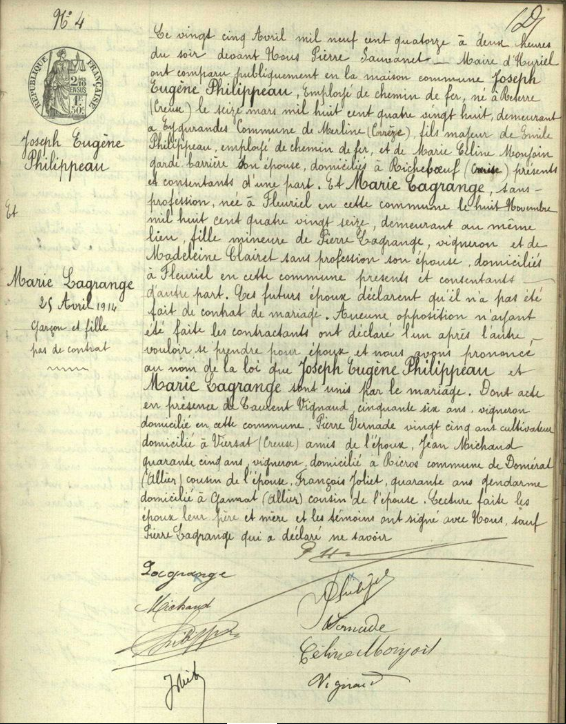 N° 4
RÉPUBLIQUE FRANÇAISE
Joseph Eugène
Philippeau
Et
Marie Lagrange
25 Avril 1914
Garçon et fille
pas de contrat
Le vingt cinq Avril mil neuf cent quatorze à deux heures
du soir devant Nous Pierre Sauvanet Maire d'Huriel
ont comparu publiquement en la maison commune Joseph
Eugène Philippeau, Employé de chemin de fer, né à
(Creuse) le seize mars mil huit cent quatre vingt huit, demeurant
à Eygurandes Commune de Merline (Corrèze) fils majeur de Emile
Philippeau, employé de chemin de fer, et de Marie Céline
garde barrière son épouse, domiciliés à Richebœuf présents
et consentants d'une part. Et Marie Lagrange, sans
profession, née à Fleuriel en cette commune le huit Novembre
mil huit cent quatre vingt seize, demeurant au même
lieu, fille mineure de Pierre Lagrange, vigneron et de
Madeleine Clairet sans profession son épouse, domiciliés
à Fleuriel en cette commune présents et consentants
d'autre part. Les futurs époux déclarent qu'il n'a pas été
fait de contrat de mariage. Aucune opposition n'ayant
été faite les contractants ont déclaré l'un après l'autre,
vouloir se prendre pour époux et nous avons prononcé
au nom de la loi que Joseph Eugène Philippeau et
Marie Lagrange sont unis par le mariage. Dont acte
en présence de Laurent Vignaud, cinquante six ans, vigneron
domicilié en cette commune, Pierre Vernade vingt cinq ans cultivateur
domicilié à Viersat (Creuse) amis de l'époux, Jean Michaud
quarante cinq ans, vigneron, domicilié à commune de Domérat
(Allier) cousin de l'épouse, François Joliet, quarante ans gendarme
domicilié à Gannat (Allier) cousin de l'épouse. Lecture faite les
époux leur père et mère et les témoins ont signé avec Nous, sauf
Pierre Lagrange qui a déclaré ne savoir
Lagrange
Michaud
Vernade
Vignaud